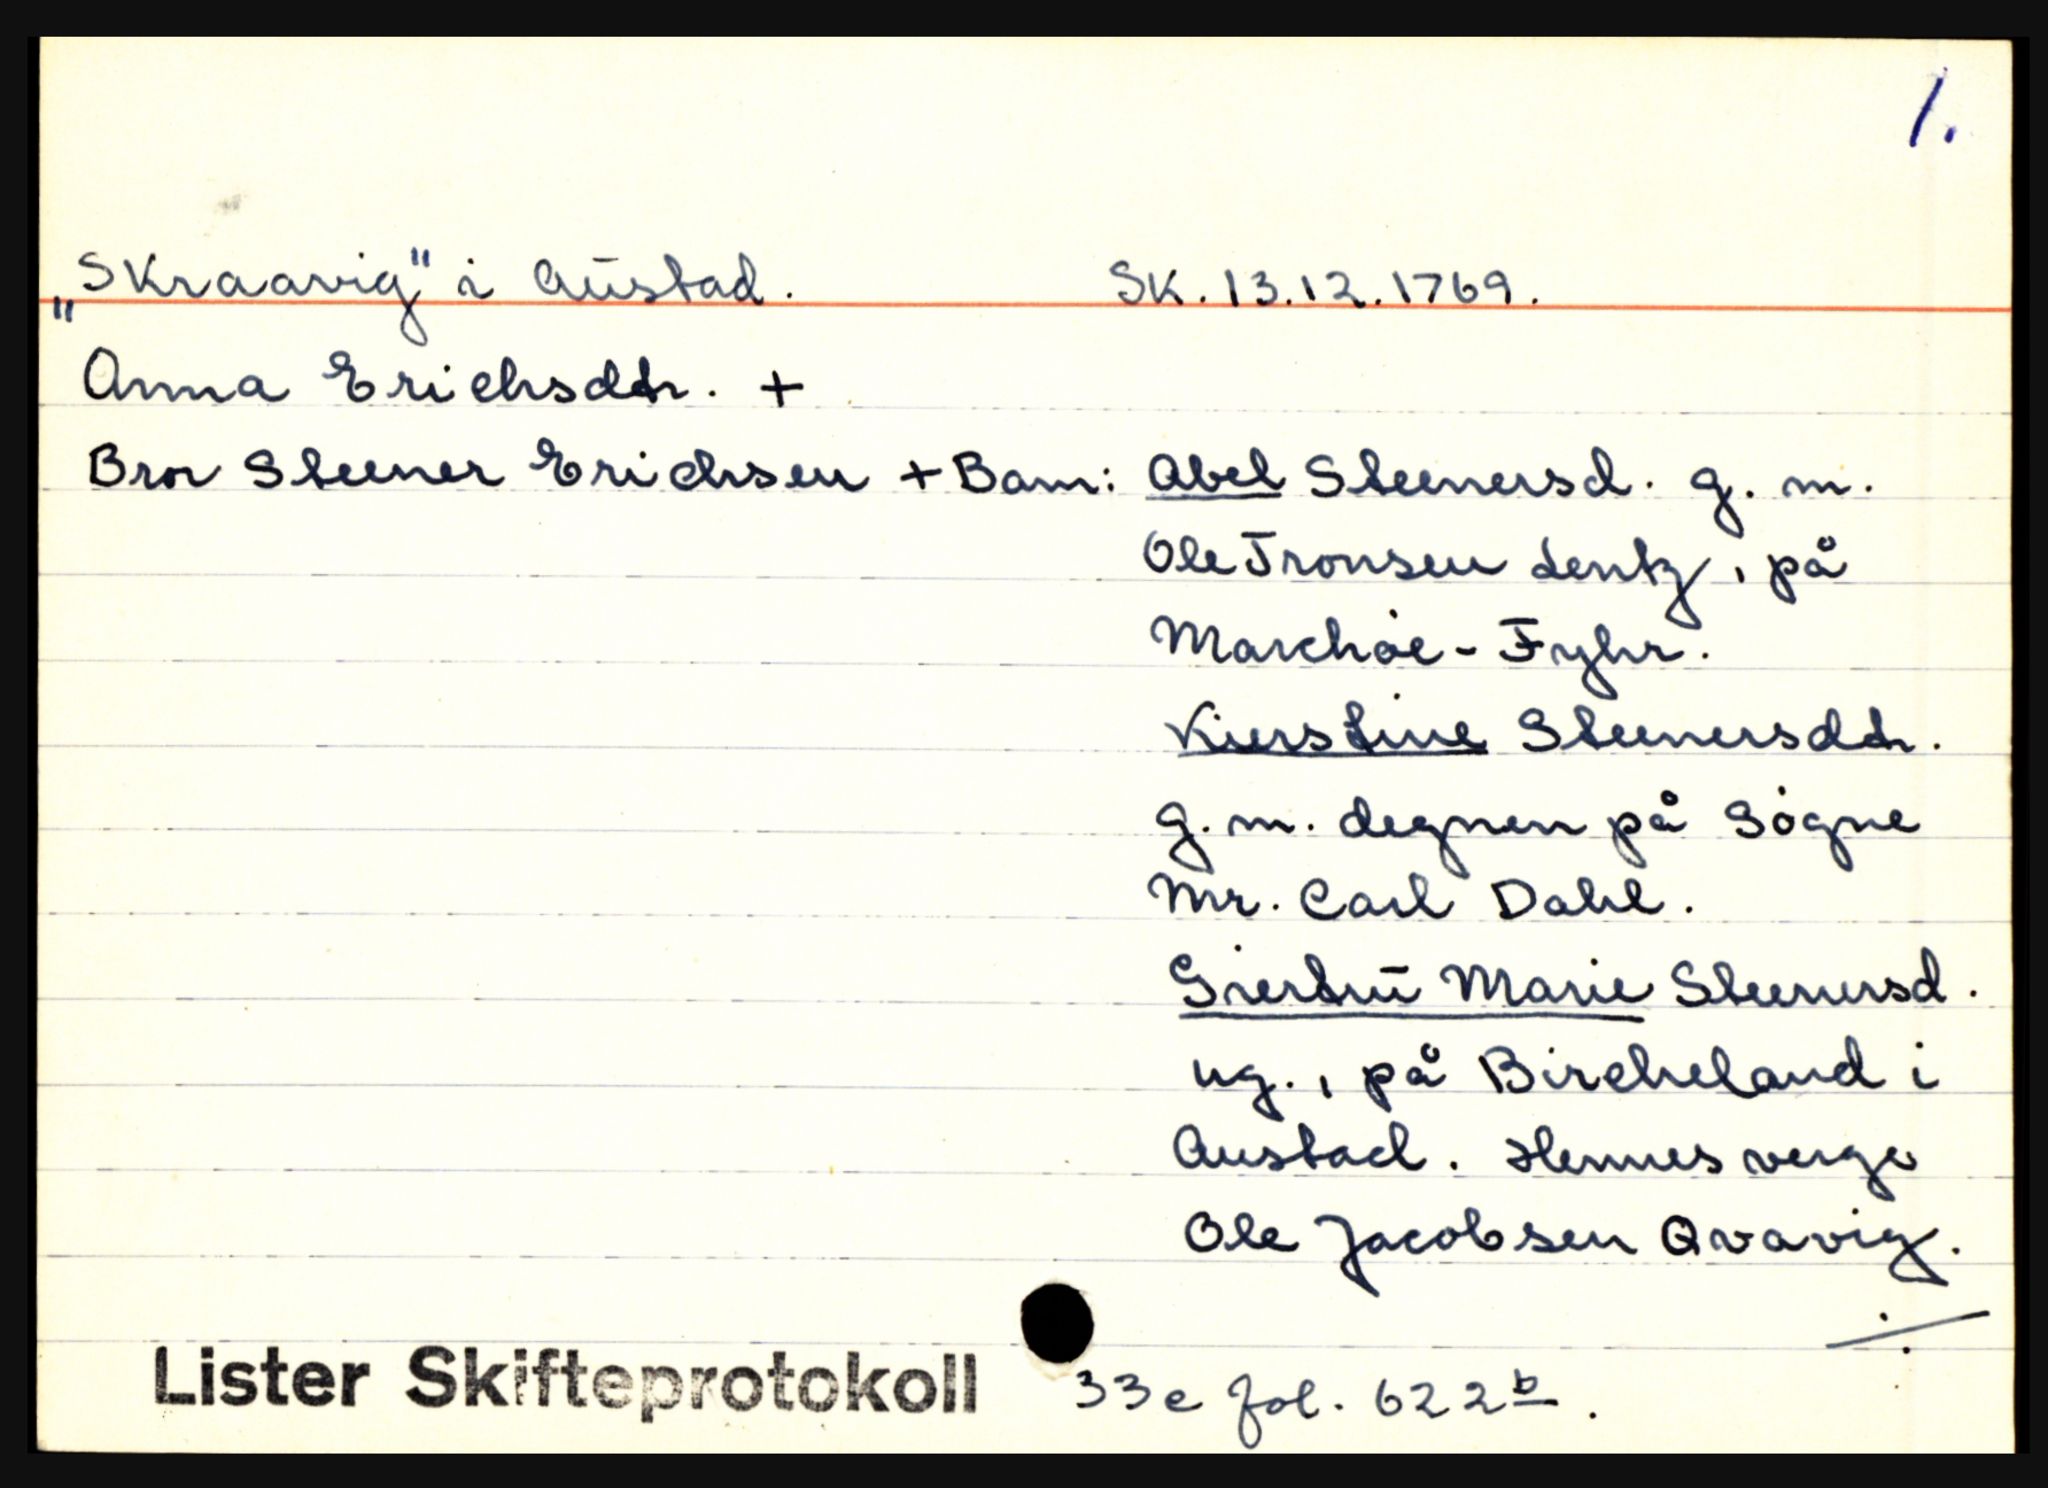 1.
„Skraavig" i Austad. Sk. 13.12.1769.
Anna Erichsdtr. +
Bror Steener Erichsen + Barn: Abel Steenersd. g. m.
Ole Tronsen Lentz, på
Marchøe - Fyhr.
Kierstine Steenersdtr.
g. m. degnen på Søgne
Mr. Carl Dahl.
Giertru Marie Steenersd.
ug., på Bircheland i
Austad. Hennes verge
Ole Jacobsen Qvavig.
./.
Lister Skifteprotokoll 33c fol. 622b.